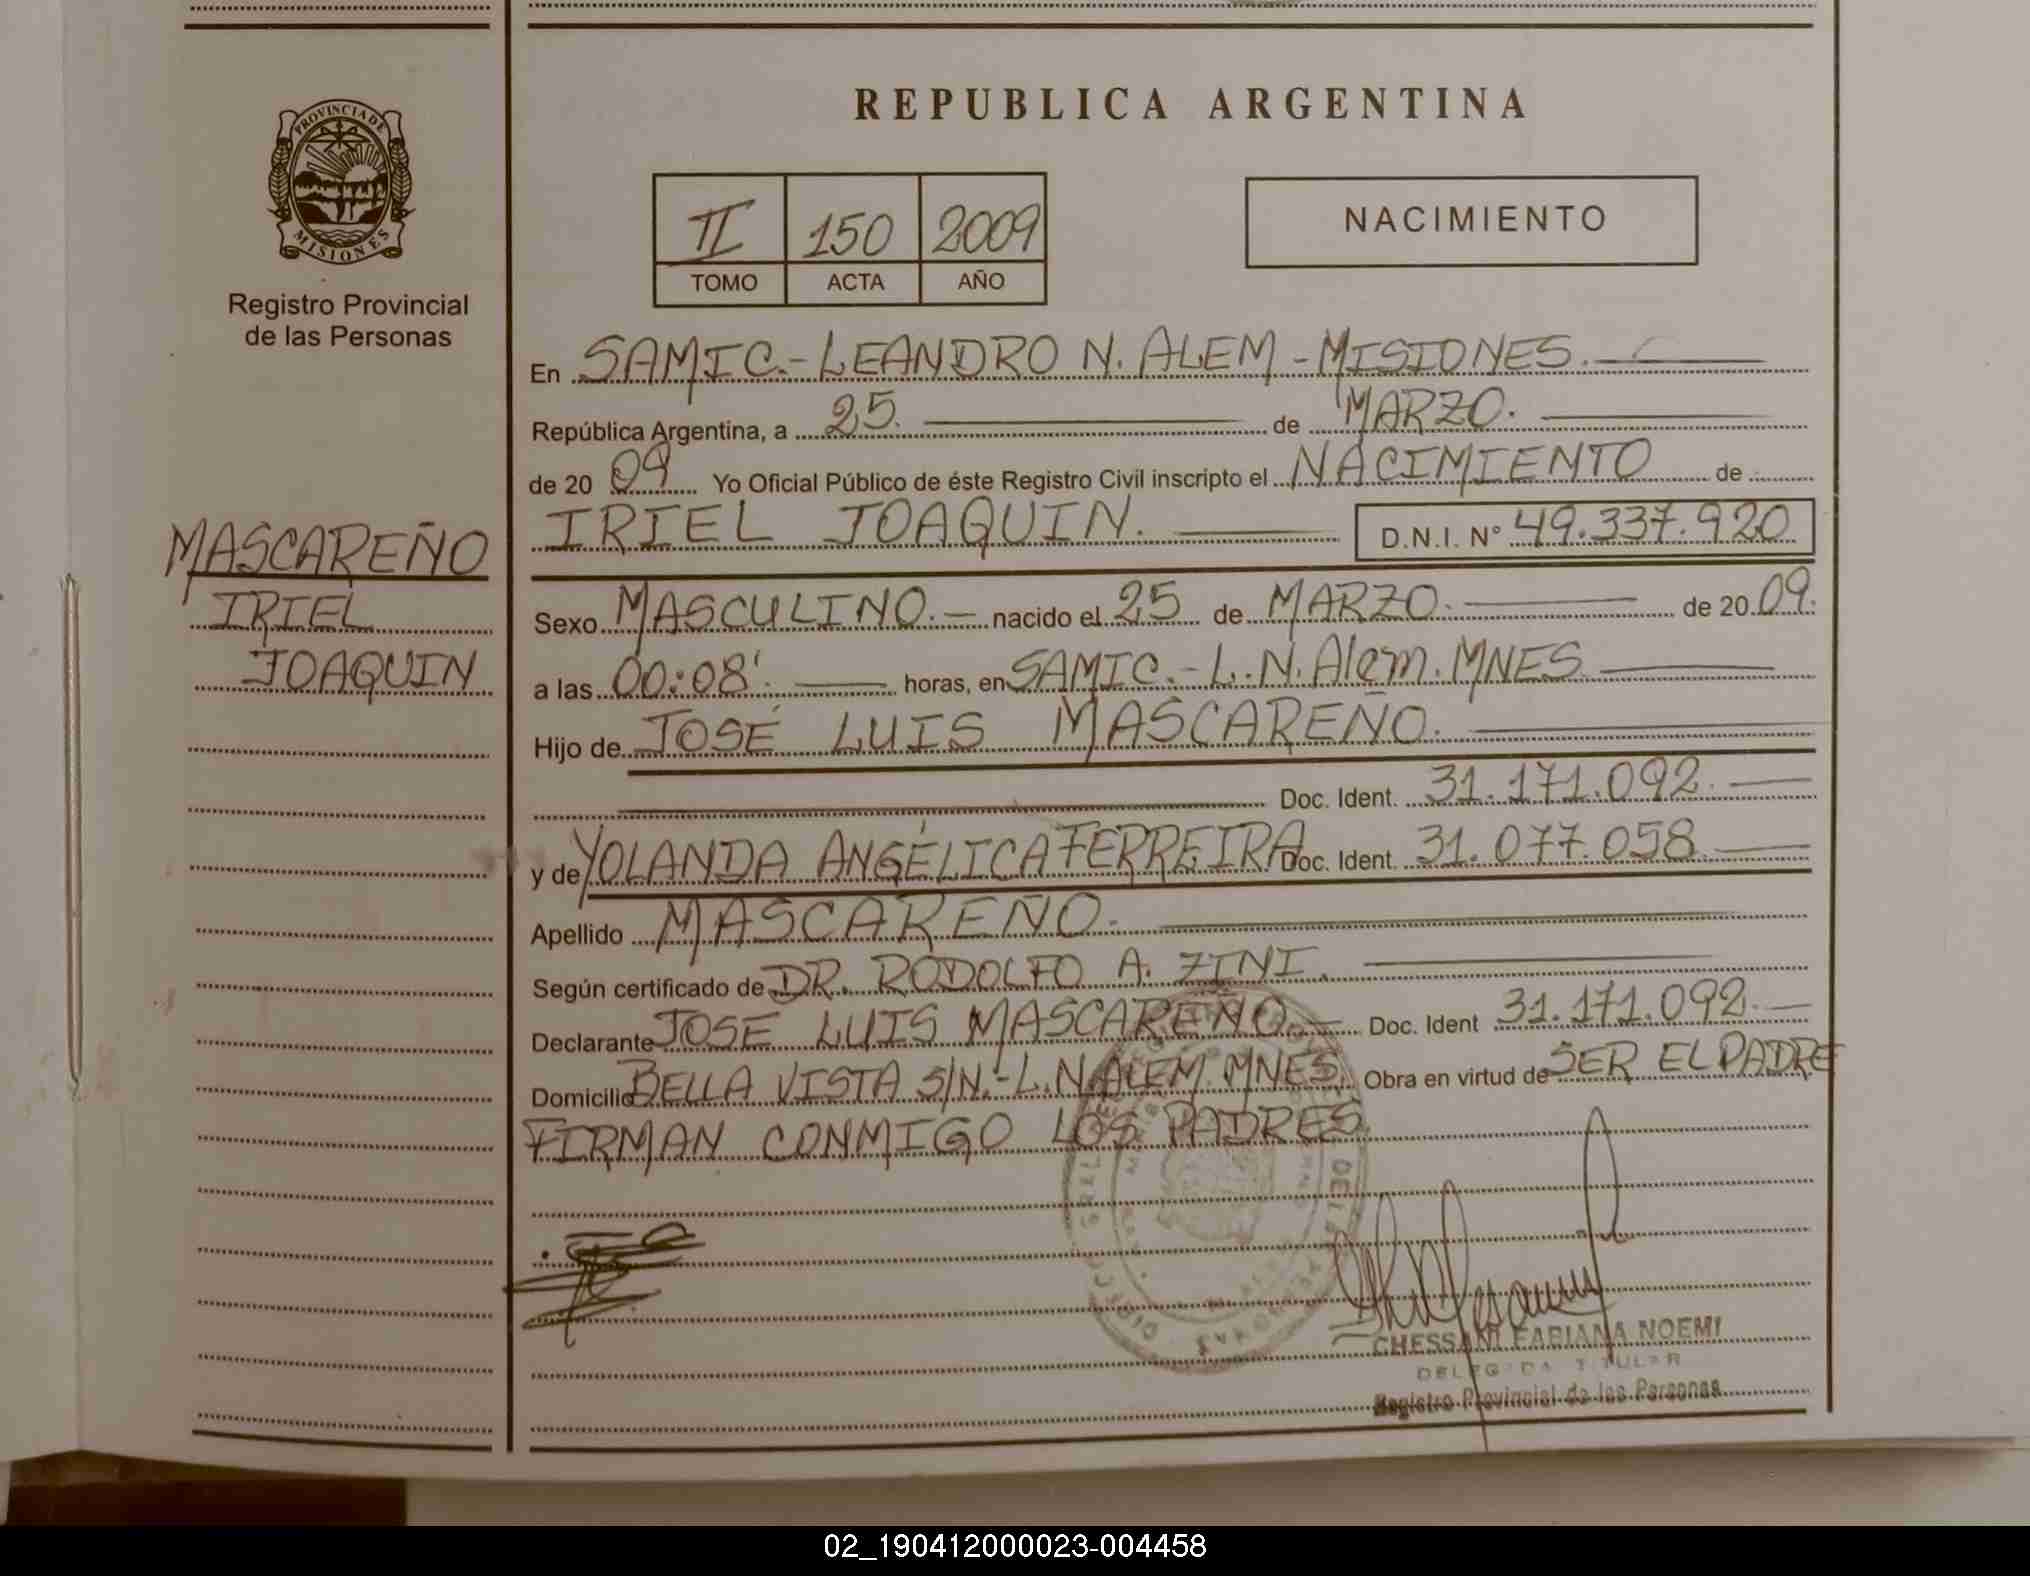 REPUBLICA ARGENTINA
PROVINCIA DE MISIONES
Registro Provincial
de las Personas
II 150 2009
TOMO ACTA AÑO
NACIMIENTO
En SAMIC.-LEANDRO N. ALEM-MISIONES.
República Argentina, a 25. de MARZO.
de 2009 Yo Oficial Público de éste Registro Civil inscripto el NACIMIENTO de
IRIEL JOAQUIN. D.N.I. N° 49.337.920
MASCAREÑO
IRIEL
JOAQUIN
Sexo MASCULINO.- nacido el 25 de MARZO. de 2009.
a las 00:08'. horas, en SAMIC.-L.N.Alem.MNES.
Hijo de JOSÉ LUIS MASCAREÑO.
Doc. Ident. 31.171.092.
y de YOLANDA ANGÉLICA FERREIRA Doc. Ident. 31.077.058.
Apellido MASCAREÑO.
Según certificado de DR. RODOLFO A. ZINI.
Declarante JOSE LUIS MASCAREÑO.- Doc. Ident 31.171.092.-
Domicilio BELLA VISTA S/N.-L.N.ALEM.MNES. Obra en virtud de SER EL PADRE
FIRMAN CONMIGO LOS PADRES.
CHESSANI FABIANA NOEMI
DELEGADA TITULAR
Registro Provincial de las Personas
02_190412000023-004458